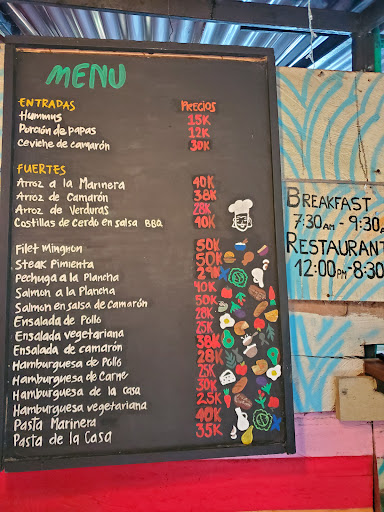 MENU
ENTRADAS PRECIOS
Hummus 15K
Porción de papas 12K
Ceviche de camarón 30K
FUERTES
Arroz a la Marinera 40K
Arroz de Camarón 38K
Arroz de Verduras 28K
Costillas de Cerdo en salsa BBQ 40K
Filet Mingnon 50K
Steak Pimienta 50K
Pechuga a la Plancha
Salmon a la Plancha 40K
Salmon en salsa de camarón 50K
Ensalada de Pollo 28K
Ensalada vegetariana 25K
Ensalada de camarón 38K
Hamburguesa de Pollo 28K
Hamburguesa de Carne 25K
Hamburguesa de la casa 30K
Hamburguesa vegetariana 25K
Pasta Marinera 40K
Pasta de la Casa 35K
BREAKFAST
7:30AM-9:30
RESTAURANT
12:00PM-8:30